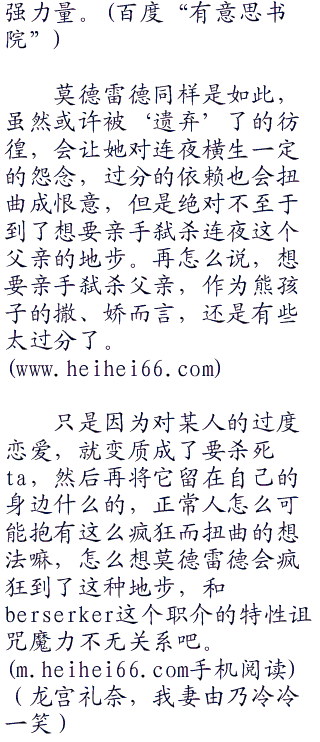 强力量。(百度“有意思书
院”)
莫德雷德同样是如此，
虽然或许被‘遗弃’了的彷
徨，会让她对连夜横生一定
的怨念，过分的依赖也会扭
曲成恨意，但是绝对不至于
到了想要亲手弑杀连夜这个
父亲的地步。再怎么说，想
要亲手弑杀父亲，作为熊孩
子的撒、娇而言，还是有些
太过分了。
(www.heihei66.com)
只是因为对某人的过度
恋爱，就变质成了要杀死
ta，然后再将它留在自己的
身边什么的，正常人怎么可
能抱有这么疯狂而扭曲的想
法嘛，怎么想莫德雷德会疯
狂到了这种地步，和
berserker这个职介的特性诅
咒魔力不无关系吧。
(m.heihei66.com手机阅读)
（龙宫礼奈，我妻由乃冷冷
一笑）